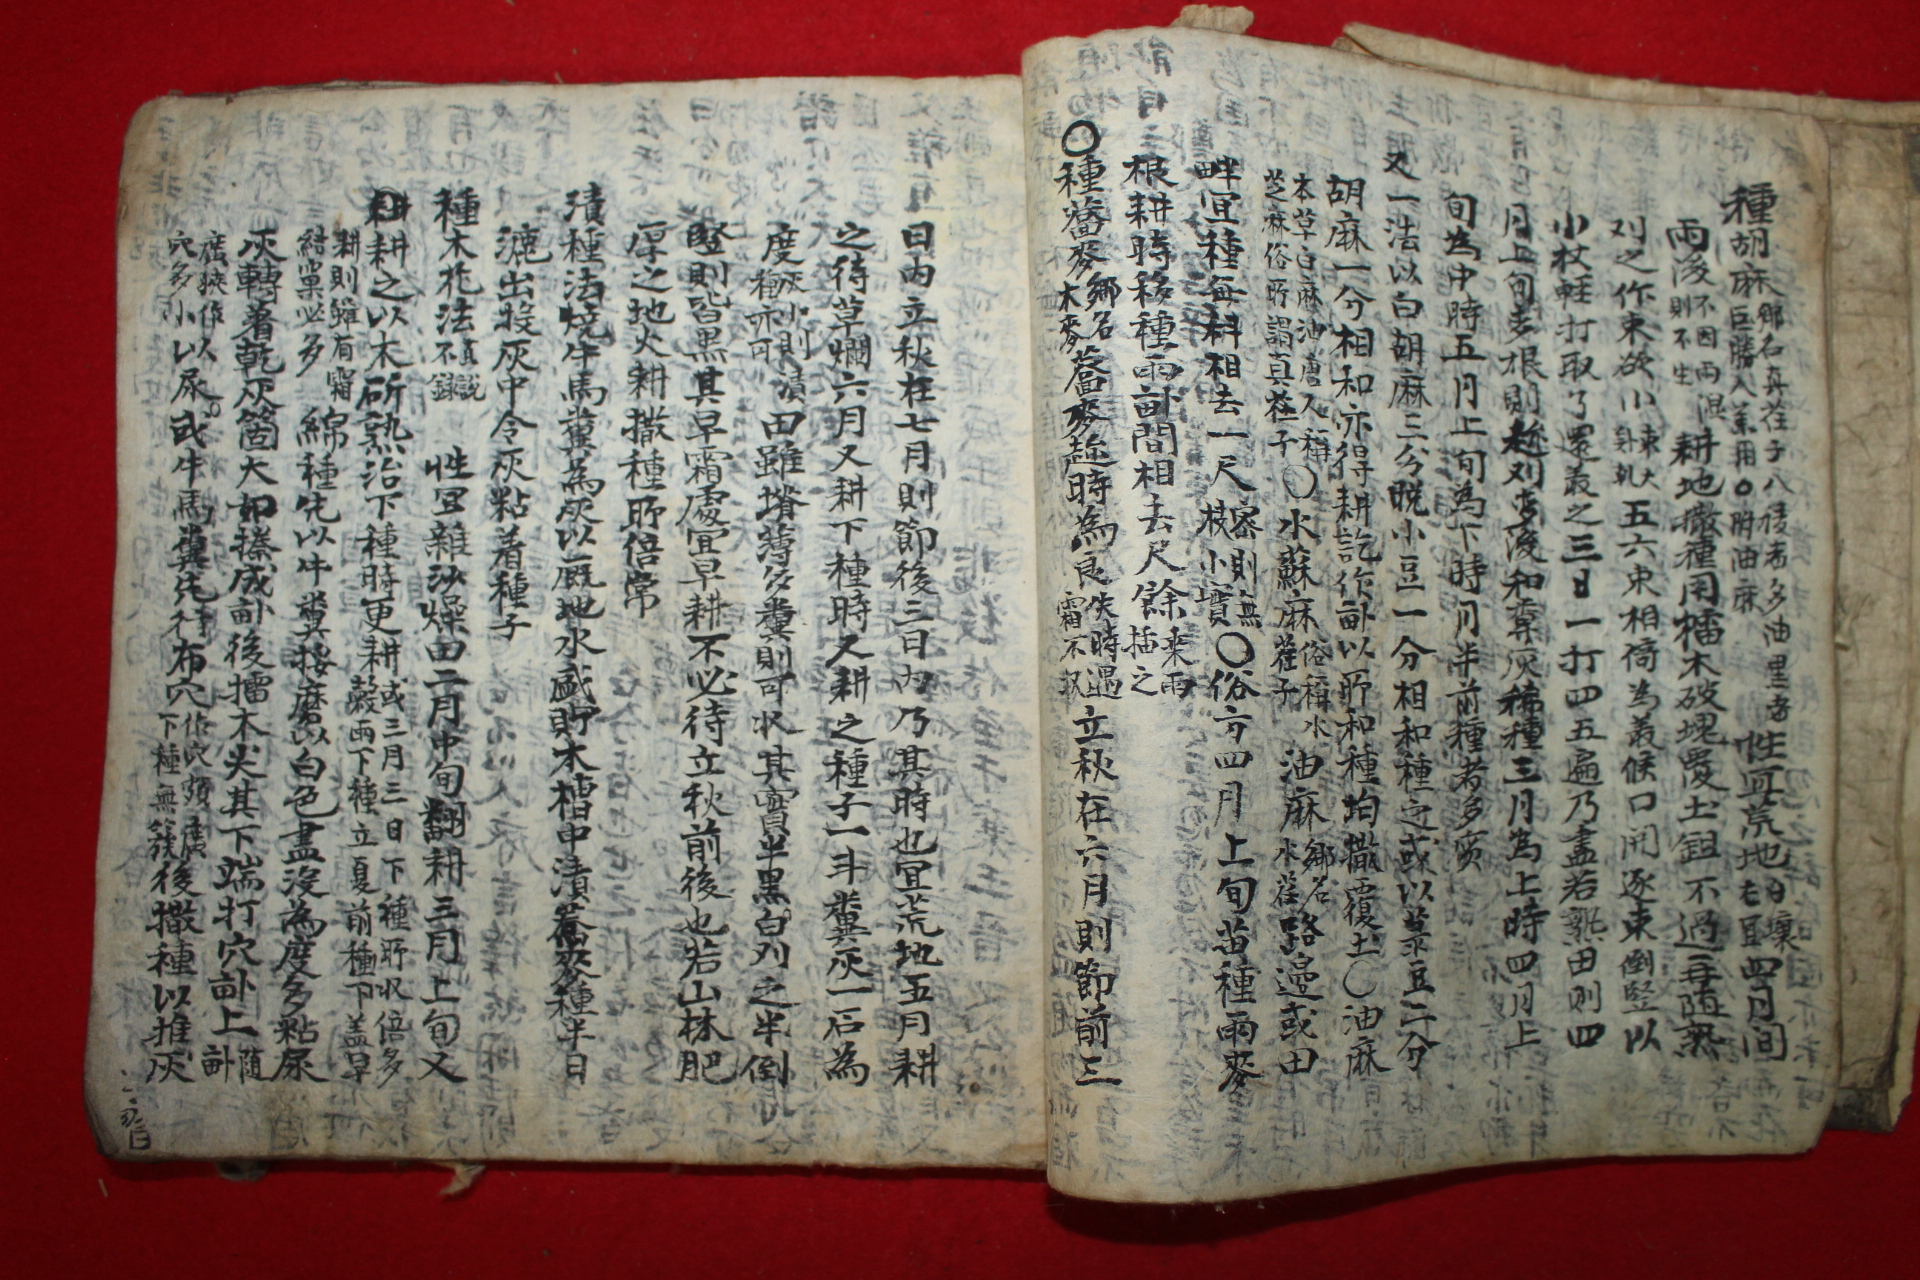 種胡麻 鄕名真荏子 八稜者多油 黑者 巨勝入藥用 ○ 卽油麻 性宜荒地 白壤尤宜 四月間
雨後 不因雨濕則不生 耕地撒種用檑木破塊覆土鋤不過再隨熟
刈之作束欲小 束大則難乾 五六束相倚爲叢候口開逐束倒竪以
小杖輕打取了還叢之三日一打四五遍乃盡若熟田則四
月上旬
旬爲中時五月上旬爲下時月半前種者多實
又一法以白胡麻三分晩小豆一分相和種之或以菉豆二分
胡麻一分相和亦得耕訖作畝以所和種均撒覆土○油麻
本草白麻油唐人稱芝麻俗所謂真荏子 ○水蘇麻 俗稱水荏子 油麻 鄕名水荏 路邊或田
畔宜種每科相去一尺 密則無枝小實 ○俗方四月上旬苗種兩麥
根耕時移種兩畝間相去尺餘 乘雨揷之
○種蕎麥 鄕名木麥 蕎麥趁時爲良 失時遇霜不收 立秋在六月則節前三
日內立秋在七月則節後三日內乃其時也宜荒地五月耕
之待草爛六月又耕下種時又耕之種子一斗糞灰一石爲
度 灰小則漬種亦可 田雖塉薄多糞則可收其實半黑白刈之半倒
竪則皆黑其早霜處宜早耕不必待立秋前後也若山林肥
厚之地火耕撒種所倍常
漬種法燒牛馬糞爲灰以廐池水盛貯木槽中漬蕎麥種半日
漉出投灰中令灰粘着種子
種木花法 直說不錄 性宜雜沙燥田二月中旬翻耕三月上旬又
耕之以木斫熟治下種時更耕 或三月三日下種所收倍多 穀雨下種立夏前種下盖早
耕則雖有霜結菓必多 綿種先以牛糞挼磨以白色盡沒爲度多粘尿
灰轉着乾灰箇大如榛成畝後擂木尖其下端打穴畝上 隨畝
廣狹作 以 穴多小 以尿或牛馬糞先待布穴 作穴頗廣下種無
後撒種以推灰